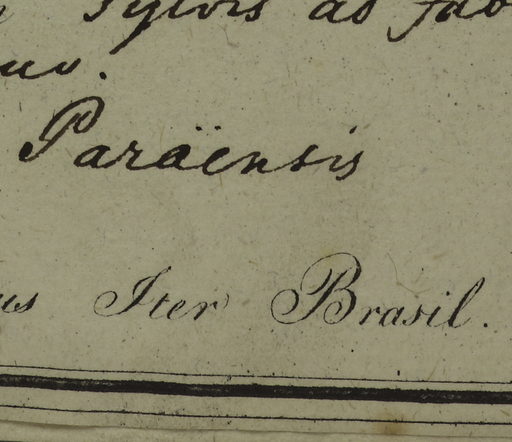 Sylvis ad
Paräensis
Iter Brasil.